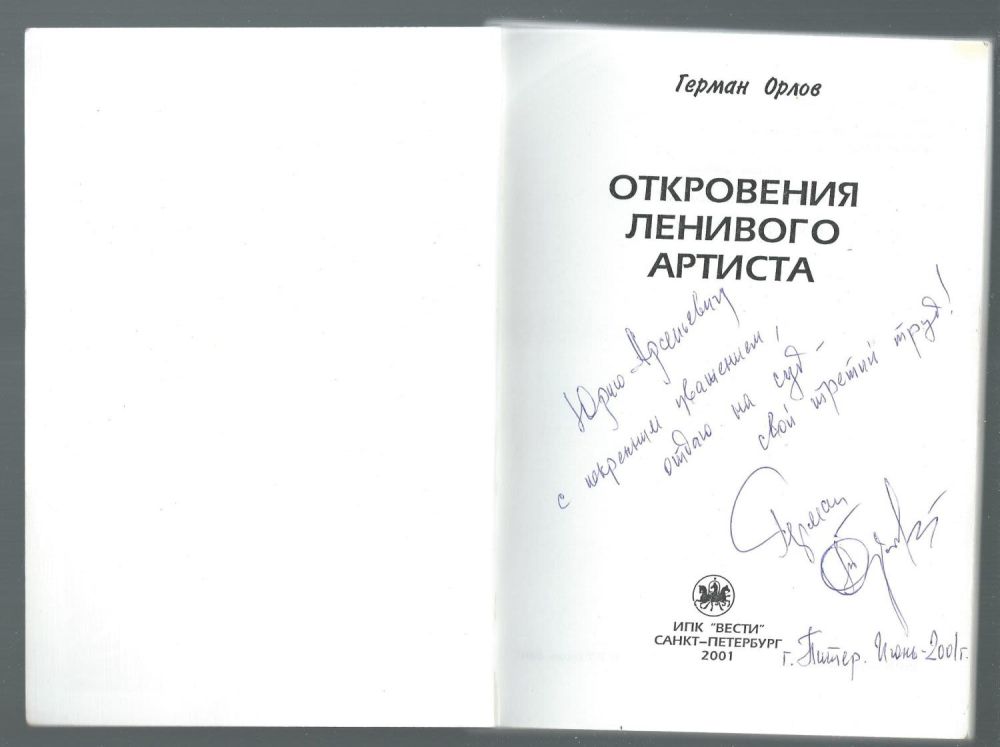 Герман Орлов
ОТКРОВЕНИЯ
ЛЕНИВОГО
АРТИСТА
Юрию Арсеньевичу
с искренним уважением,
отдаю на суд –
свой третий труд!
Герман Орлов
ИПК "ВЕСТИ"
САНКТ–ПЕТЕРБУРГ
2001
г. Питер. Июнь–2001г.